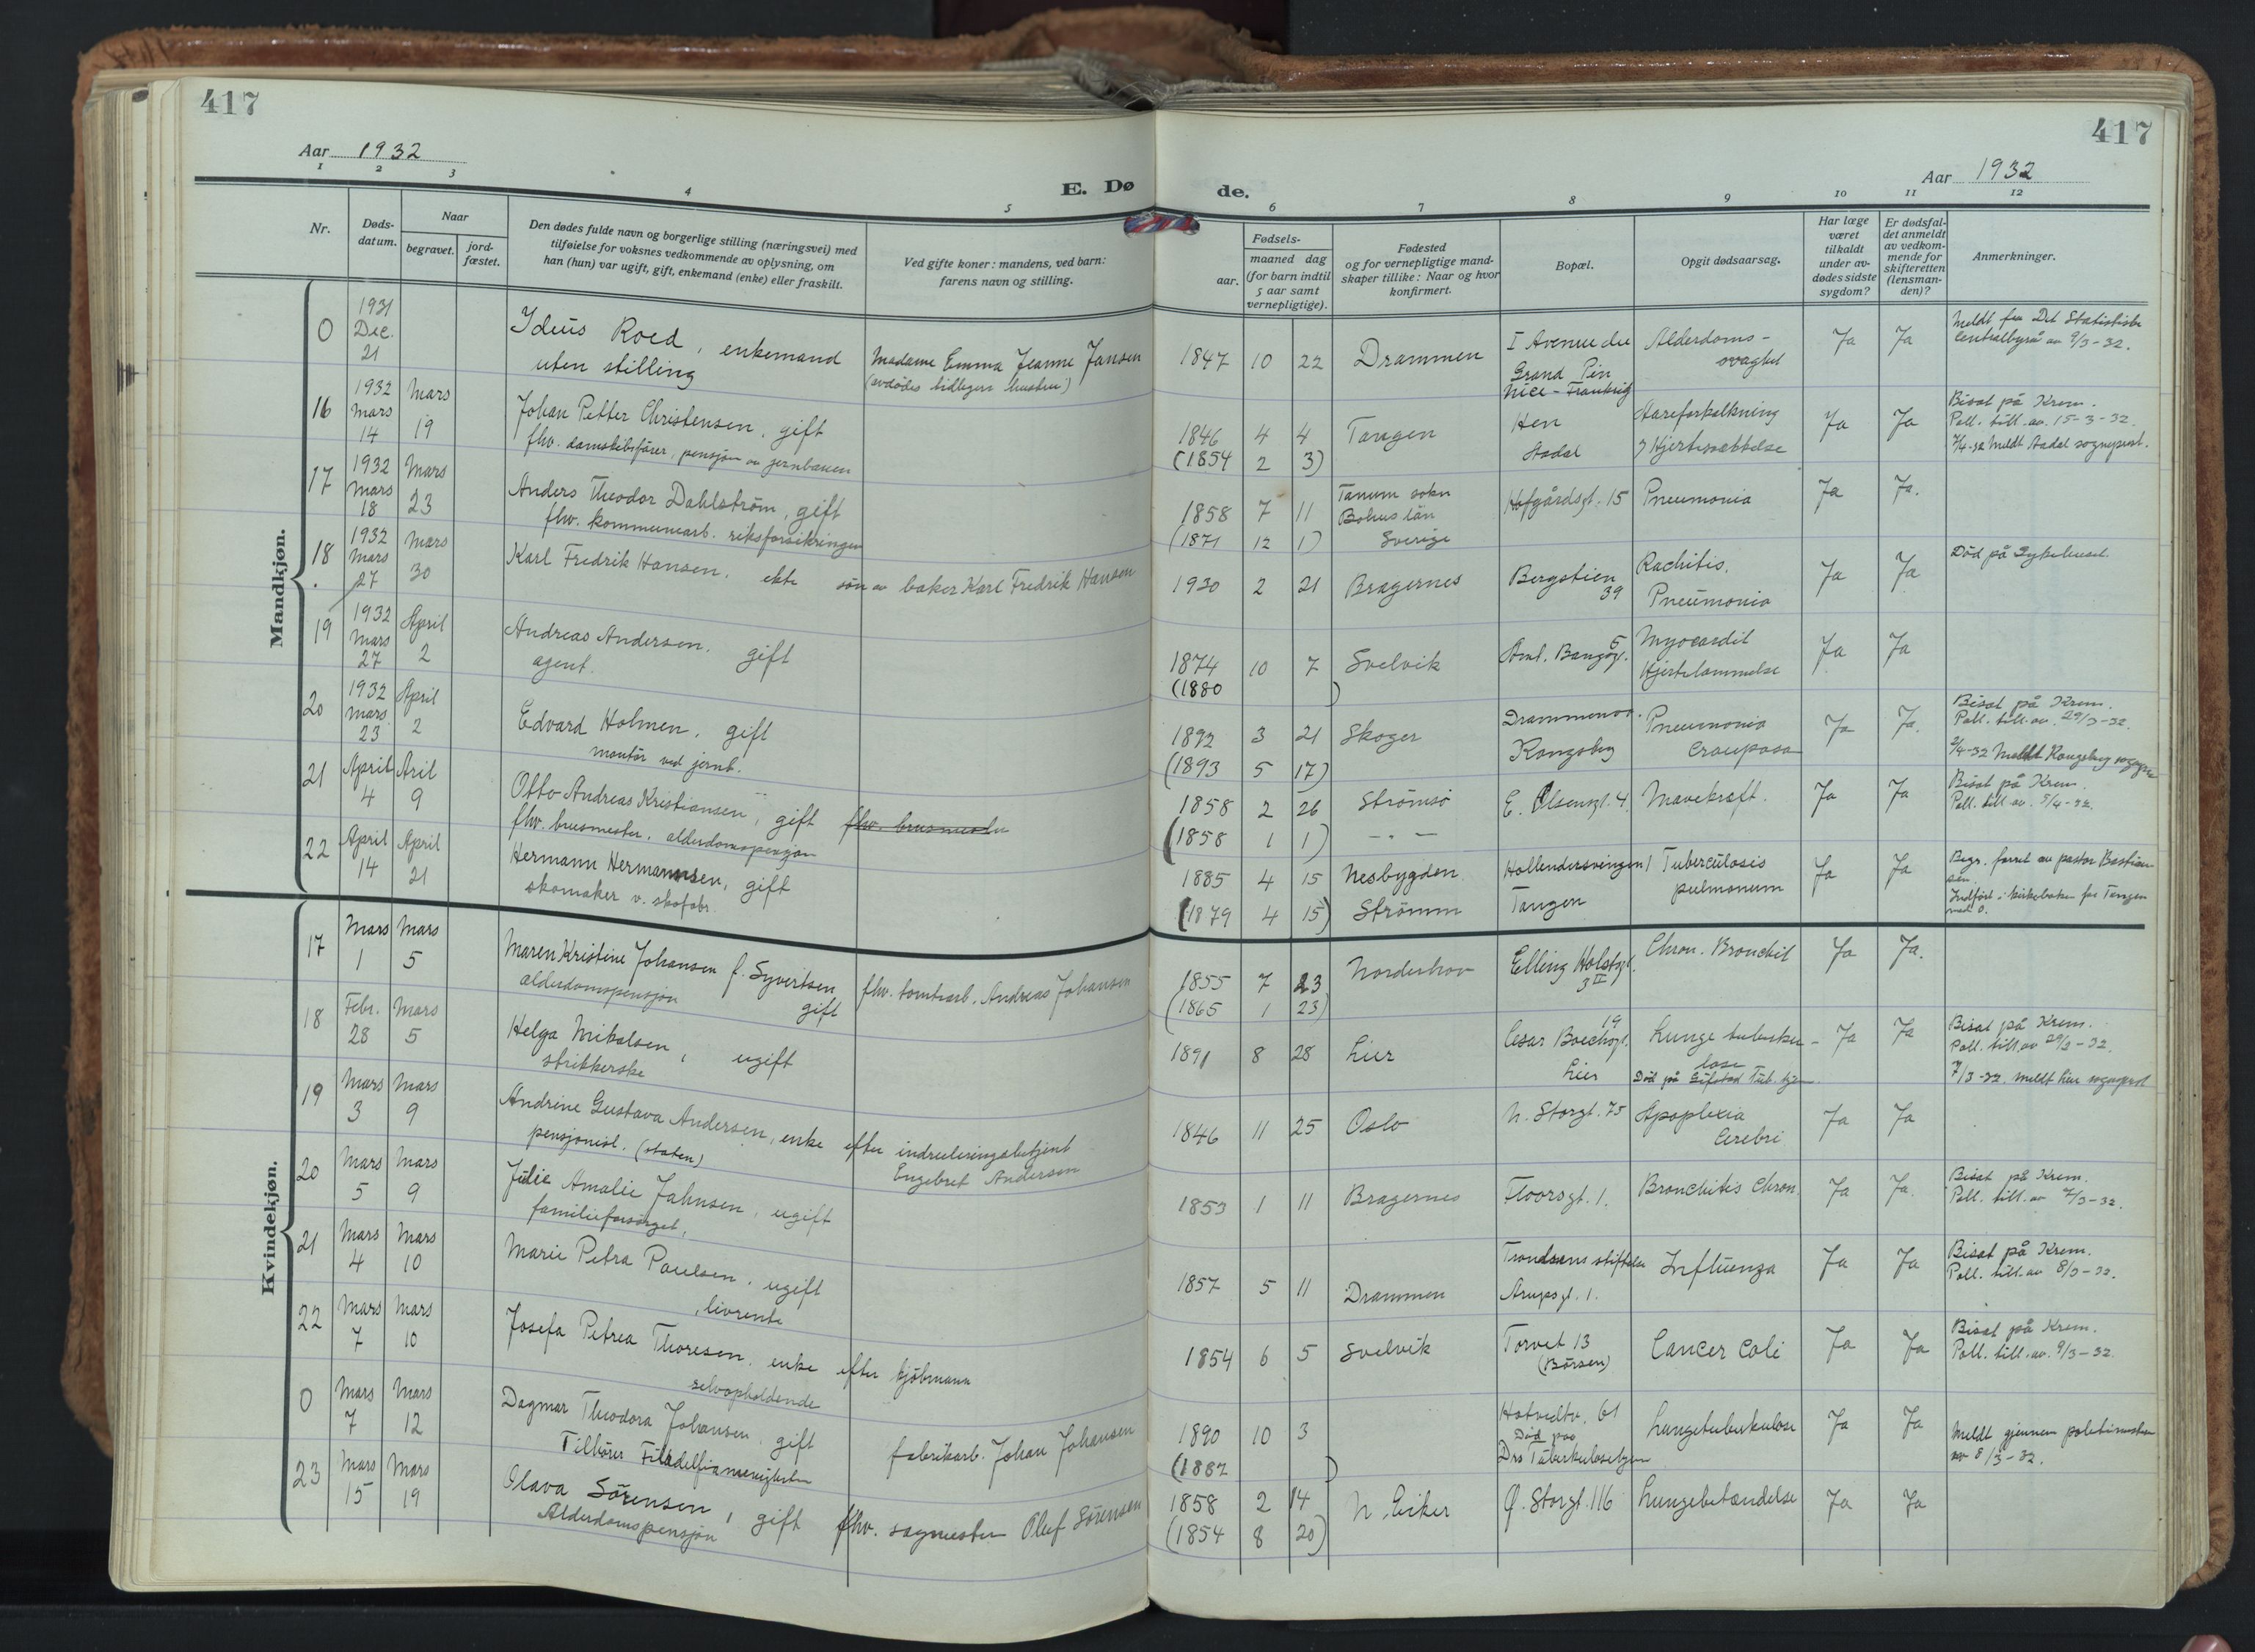 417
417
Aar 1932
Aar 1932
E. Dø
de.
1 2 3 4 5 6 7 8 9 10 11 12
Nr.
Døds-
datum.
Naar
begravet.
jord-
fæstet.
Den dødes fulde navn og borgerlige stilling (næringsvei) med
tilføielse for voksnes vedkommende av oplysning, om
han (hun) var ugift, gift, enkemand (enke) eller fraskilt.
Ved gifte koner: mandens, ved barn:
farens navn og stilling.
Fødsels-
aar.
maaned dag
(for barn indtil
5 aar samt
vernepligtige).
Fødested
og for vernepligtige mand-
skaper tillike: Naar og hvor
konfirmert.
Bopæl.
Opgit dødsaarsag.
Har læge
været
tilkaldt
under av-
dødes sidste
sygdom?
Er dødsfal-
det anmeldt
av vedkom-
mende for
skifteretten
(lensman-
den)?
Anmerkninger.
Mandkjøn.
0 1931 Dec. 21
Ideus Roed, enkemand
uten stilling
Madame Emma Jeanne Jansen
(avdødes tidligere hustru)
1847 10 22 Drammen
I Avenue du
Grand Pin
Nice - Frankrig
Alderdoms-
svaghet
Ja Ja
Meldt fra Det Statistiske
Centralbyrå av 9/3-32.
16 1932 Mars 14 Mars 19
Johan Petter Christensen, gift
fhv. damskibsfører, pensjon av jernbanen
1846 4 4 Tangen
(1854 2 3)
Hen
Aadal
Aareforkalkning
Hjertesvættelse
Ja Ja
Bisat på Krem.
Poli. till. av. 15-3-32.
7/4-32 Meldt Aadal sogneprest.
17 1932 Mars 18 Mars 23
Anders Theodor Dahlström, gift
fhv. kommunearb. riksforsikringen
1858 7 11
(1871 12 1)
Tanum sokn
Bohus län
Sverige
Hofgårdsgt. 15 Pneumonia Ja Ja.
18 1932 Mars 27 Mars 30
Karl Fredrik Hansen, ekte søn av baker Karl Fredrik Hansen
1930 2 21 Bragernes
Bergstien
39
Rachitis,
Pneumonia
Ja Ja
Død på Sykehuset.
19 1932 Mars 27 April 2
Andreas Andersen, gift
agent.
1874 10 7 Svelvik
(1880 )
Aml. Bangsgt. 5
Myocardit
Hjertelammelse
Ja Ja
20 1932 Mars 23 April 2
Edvard Holmen, gift
montör ved jernb.
1892 3 21 Skoger
(1893 5 17)
Drammensv.
Kongsberg
Pneumonia
crouposa
Ja Ja.
Bisat på Krem.
Poli. till. av. 29/3-32.
2/4-32 Meldt Kongsberg sognepr
21 April 4 Aril 9
Otto Andreas Kristiansen, gift fhv. brusmester
fhv. brusmester, alderdomspensjon
1858 2 26 Strömsö
(1858 1 1) - " -
E. Olsensgt. 4. Mavekræft. Ja Ja
Bisat på Krem.
Poli. till av. 5/4-32.
22 April 14 April 21
Hermann Hermannsen, gift
skomaker v. skofabr.
1885 4 15 Nesbygden
(1879 4 15) Strömm
Hollendersvingen 1
Tangen
Tuberculosis
pulmonum
Ja Ja
Begr. forret av pastor Bastian
sen.
Indført i kirkeboken for Tangen
med 0.
Kvindekjøn.
17 Mars 1 Mars 5
Maren Kristine Johansen f. Syvertsen
alderdomspensjon gift
fhv. tomtearb. Andreas Johansen
1855 7 23 Norderhov
(1865 1 23)
Elling Holstgt.
3 II
Chron. Bronchit Ja Ja.
18 Febr. 28 Mars 5
Helga Mikalsen, ugift
strikkerske
1891 8 28 Lier
Cesar Boechsgt. 19
Lier
Lunge tuberku-
lose
Død på Gifstad Tub. hjem.
Ja Ja
Bisat på Krem.
Poli. till. av 29/2-32.
7/3-32. meldt Lier sogneprest
19 Mars 3 Mars 9
Andrine Gustava Andersen, enke efter indrulleringsbetjent
pensjonist. (staten) Engebret Andersen
1846 11 25 Oslo
N. Storgt. 75
Apoplexia
Cerebri
Ja Ja
20 Mars 5 Mars 9
Julie Amalie Jahnsen, ugift
familieforsørget.
1853 1 11 Bragernes
Floorsgt. 1. Bronchitis Chron. Ja Ja.
Bisat på Krem.
Poli. till. av 7/3-32.
21 Mars 4 Mars 10
Marie Petra Paulsen, ugift
livrente
1857 5 11 Drammen
Trondsens stiftelse
Arupsgt. 1.
Influenza Ja Ja
Bisat på Krem.
Poli. till. av 8/3-32.
22 Mars 7 Mars 10
Josefa Petrea Thoresen, enke efter kjöbmann
selvopholdende
1854 6 5 Svelvik
Torvet 13
(Børsen)
Cancer Coli Ja Ja
Bisat på Krem.
Poli. till. av. 9/3-32.
0 Mars 7 Mars 12
Dagmar Theodora Johansen, gift
Tilhører Filadelfiamenigheten
fabrikarb. Johan Johansen
1890 10 3
(1887 )
Hotvedtv. 61
Død paa
Drs Tuberkulosehjem
Lungetuberkulose Ja Ja
Meldt gjennem politimesteren
av 8/3-32.
23 Mars 15 Mars 19
Olava Sörensen, gift fhv. sagmester Oluf Sörensen
Alderdomspensjon
1858 2 14 N. Eiker
(1854 8 20)
Ø. Storgt. 116 Lungebetændelse Ja Ja